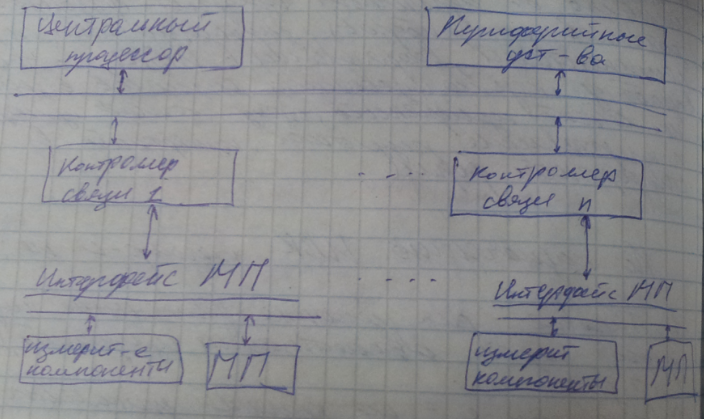 Центральный
процессор
Периферийные
уст-ва
Контроллер
связи 1
Контроллер
связи n
Интерфейс МП
Интерфейс МП
измерит-е
компоненты
МП
измерит
компоненты
МП